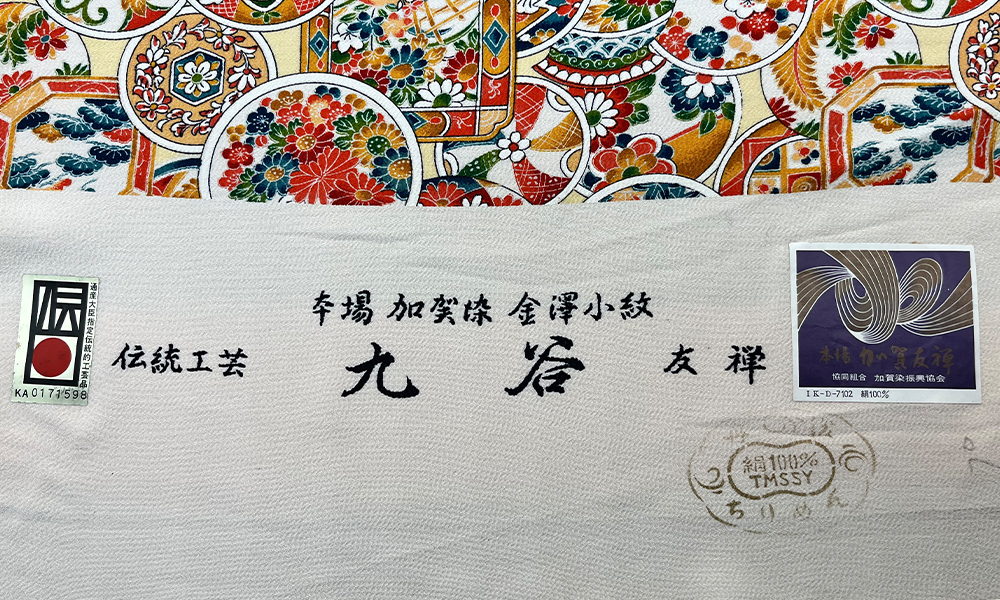 本場 加賀染 金澤小紋
伝統工芸 九谷 友禅
伝
通産大臣指定伝統的工芸品
KA0171598
本場 加賀友禅
協同組合 加賀染振興協会
IK-D-7102 絹100%
絹100%
TMSSY
ちりめん